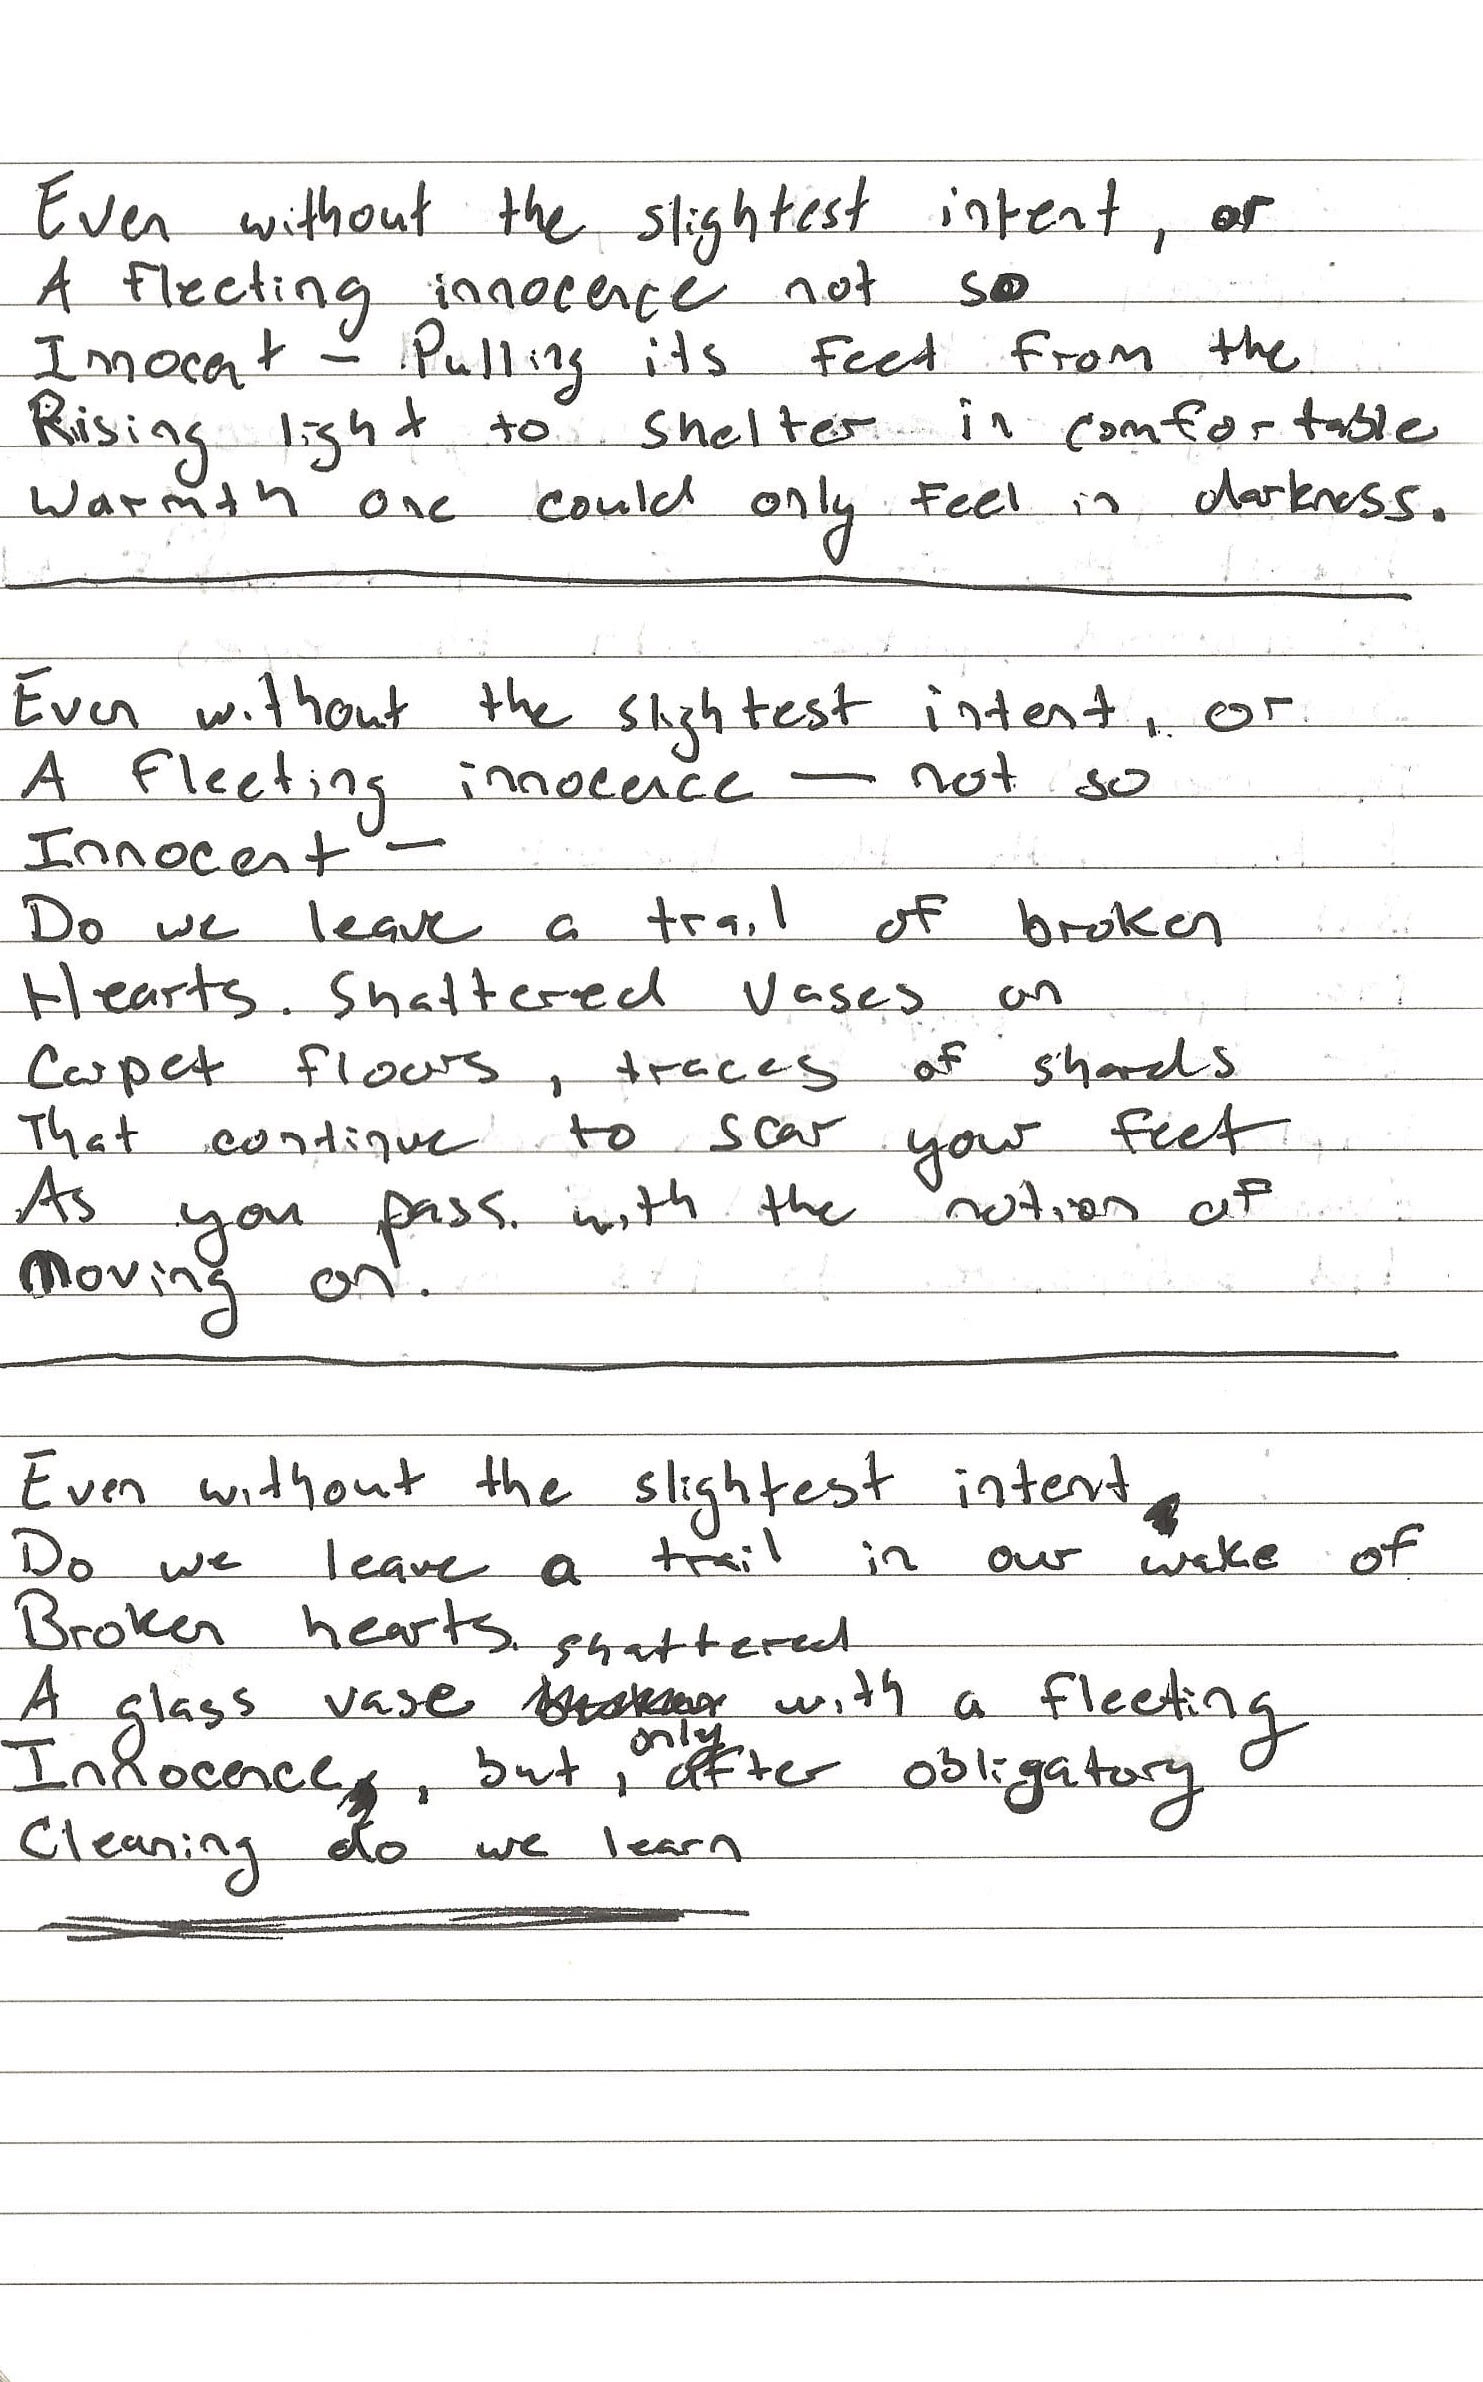 Even without the slightest intent, or
A fleeting innocence not so
Innocent – Pulling its feet from the
Rising light to shelter in comfortable
Warmth one could only feel in darkness.
Even without the slightest intent, or
A fleeting innocence — not so
Innocent –
Do we leave a trail of broken
Hearts. Shattered vases on
Carpet floors, traces of shards
That continue to scar your feet
As you pass with the notion of
Moving on.
Even without the slightest intent
Do we leave a trail in our wake of
Broken hearts.
shattered
A glass vase with a fleeting
only
Innocence, but, after obligatory
Cleaning do we learn